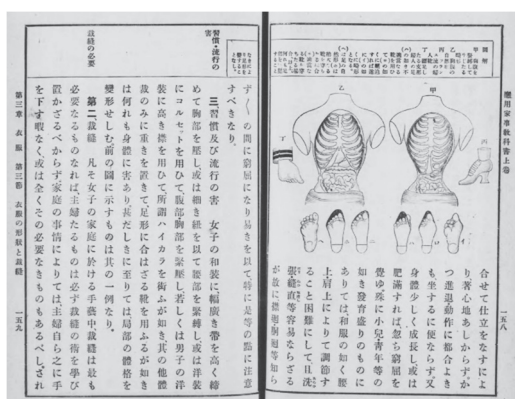 應用家事教科書上卷
一五八
甲
乙
丙
丁
合せて仕立をなすによ
り、著心地あしからず、か
つ進退動作に都合よき
も、坐するに便ならず、又
身體少しく成長し、或は
肥滿すれば、忽ち窮屈を
覺ゆ。殊に小兒青年等の
如き發育盛りのものに
ありては、和服の如く腰
上肩上によりて調節す
ること困難にして、且洗
張縫直等容易ならざる
が故に、
ず〳〵の間に窮屈になり易きを以て、特に是等の點に注意
すべきなり。
習慣・流行の害
三、習慣及び流行の害 女子の和裝に、幅廣き帶を高く締
めて胸部を壓し、或は細き紐を以て腰部を緊縛し、或は洋裝
にコルセットを用ひて、腹部・胸部を緊壓し、若しくは男子の洋
裝に高き襟を用ひて、所謂ハイカラを衒ふが如き、其の他體
裁のみに重きを置きて、足形に合はざる靴を用ふるが如き
は、何れも身體に害あり、甚だしきに至りては、局部の體格を
變形せしむ。前の圖に示すものは、其の一例なり。
裁縫の必要
第二、裁縫 凡そ女子の家庭に於ける手藝中、裁縫は最も
必要なるものなれば、主婦たるものは、必ず裁縫の術を學び
置かざるべからず。家庭の事情によりては、主婦自ら之に手
を下す暇なく、或は全くその必要なきものもあるべし。され
第三章 衣服 第三節 衣服の形狀と裁縫
一五九